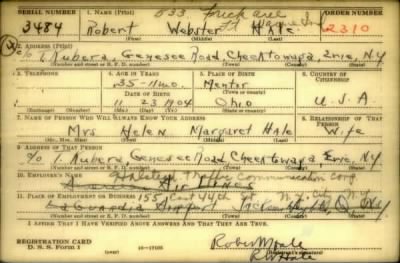 SERIAL NUMBER 1. NAME (Print) 533 ORDER NUMBER
3484 Robert Webster Hale 2310
(First) (Middle) (Last)
2. ADDRESS (Print)
c/o Kubera, Genesee Road, Cheektowaga, Erie, NY
(Number and street or R. F. D. number) (Town) (County) (State)
3. TELEPHONE 4. AGE IN YEARS 5. PLACE OF BIRTH 6. COUNTRY OF CITIZENSHIP
35-11 mo. Mentor
DATE OF BIRTH (Town or county)
11 23 1904 Ohio U.S.A
(Exchange) (Number) (Mo.) (Day) (Yr.) (State or country)
7. NAME OF PERSON WHO WILL ALWAYS KNOW YOUR ADDRESS 8. RELATIONSHIP OF THAT PERSON
Mrs Helen Margaret Hale Wife
(Mr., Mrs., Miss) (First) (Middle) (Last)
9. ADDRESS OF THAT PERSON
c/o Kubera, Genesee Road, Cheektowaga, Erie, NY
(Number and street or R. F. D. number) (Town) (County) (State)
10. EMPLOYER'S NAME Traffic Communication Corp
American Air Lines
11. PLACE OF EMPLOYMENT OR BUSINESS 155 East 44th St
LaGuardia Airport Jackson Heights, Q, NY
(Number and street or R. F. D. number) (Town) (County) (State)
I AFFIRM THAT I HAVE VERIFIED ABOVE ANSWERS AND THAT THEY ARE TRUE.
REGISTRATION CARD
D. S. S. Form 1 16-17105
Robert W Hale
R W Hale